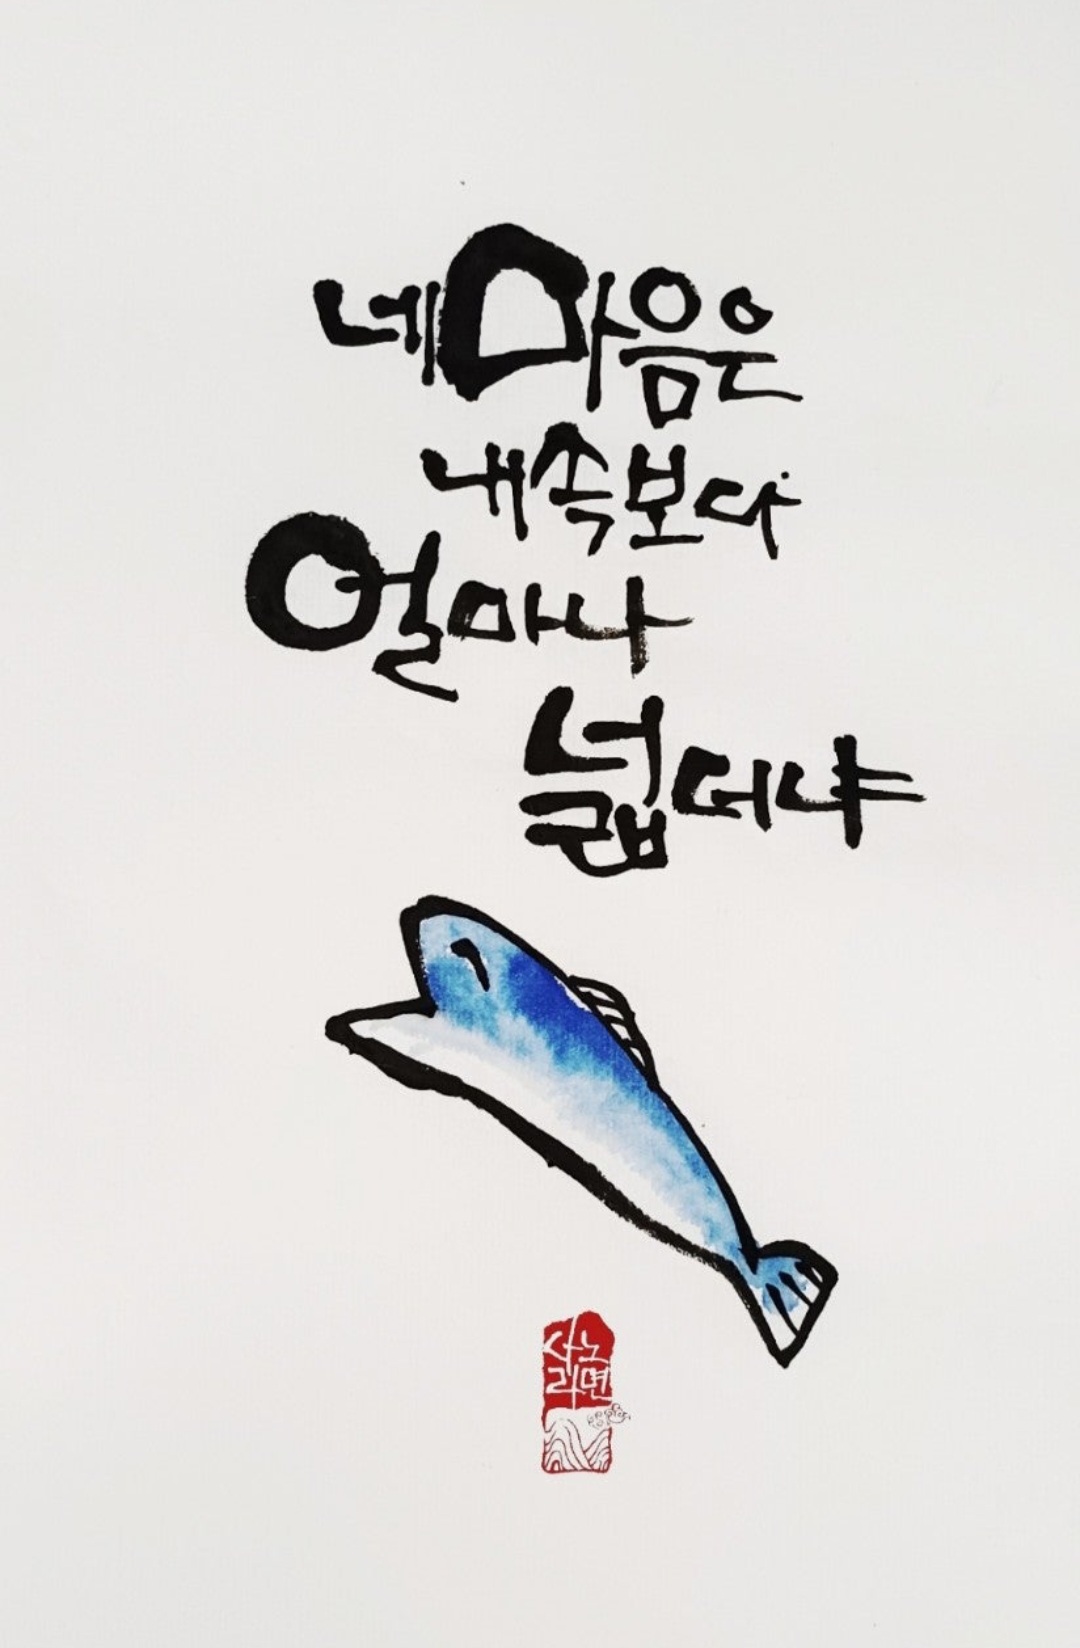 네마음은
내속보다
얼마나
넓더냐
사노
라면